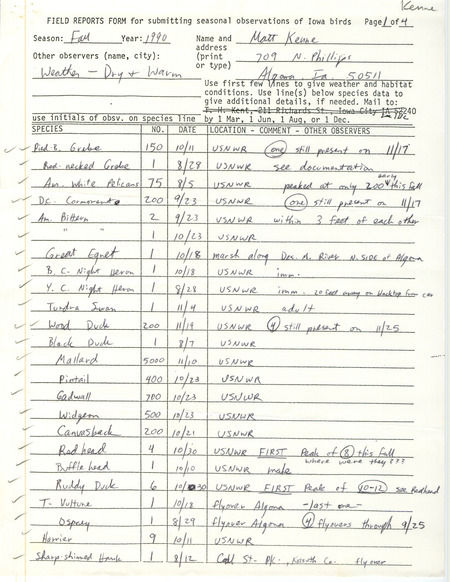 Kenne
FIELD REPORTS FORM for submitting seasonal observations of Iowa birds Page 1 of 4
Season: Fall Year: 1990 Name and Matt Kenne
Other observers (name, city): address 709 N. Phillips
Weather - Dry & Warm (print or type) Algona, Ia. 50511
Use first few lines to give weather and habitat
conditions. Use line(s) below species data to
give additional details, if needed. Mail to:
T. H. Kent, 211 Richards St., Iowa City IA 52240
use initials of obsv. on species line by 1 Mar, 1 Jun, 1 Aug, or 1 Dec.
SPECIES NO. DATE LOCATION - COMMENT - OTHER OBSERVERS
Pied-B. Grebe 150 10/11 USNWR one still present on 11/17
Red-necked Grebe 1 8/28 USNWR see documentation
Am. White Pelicans 75 8/5 USNWR peaked at only 200 early this fall
DC. Cormorants 200 9/23 USNWR one still present on 11/17
Am. Bittern 2 9/23 USNWR within 3 feet of each other
" " 1 10/23 USNWR
Great Egret 1 10/18 marsh along Des. M. River N. SIDE of Algona
B. C. Night Heron 1 10/18 USNWR imm.
Y. C. Night Heron 1 8/28 USNWR imm. 20 feet away on blacktop from car
Tundra Swan 1 11/4 USNWR adult
Wood Duck 200 11/19 USNWR 4 still present on 11/25
Black Duck 1 8/7 USNWR
Mallard 5000 11/10 USNWR
Pintail 400 10/23 USNWR
Gadwall 700 10/23 USNWR
Widgeon 500 10/23 USNWR
Canvasback 200 10/21 USNWR
Redhead 4 10/30 USNWR FIRST Peak of 8 this fall
where were they???
Bufflehead 1 10/10 USNWR male
Ruddy Duck 6 10/30 USNWR FIRST Peak of 10-12 see Redhead
T- Vulture 1 10/18 flyover Algona - last one -
Osprey 1 8/29 flyover Algona 4 flyovers through 9/25
Harrier 9 10/11 USNWR
Sharp-shinned Hawk 1 8/12 Call St. Pk., Kossuth Co. flyover